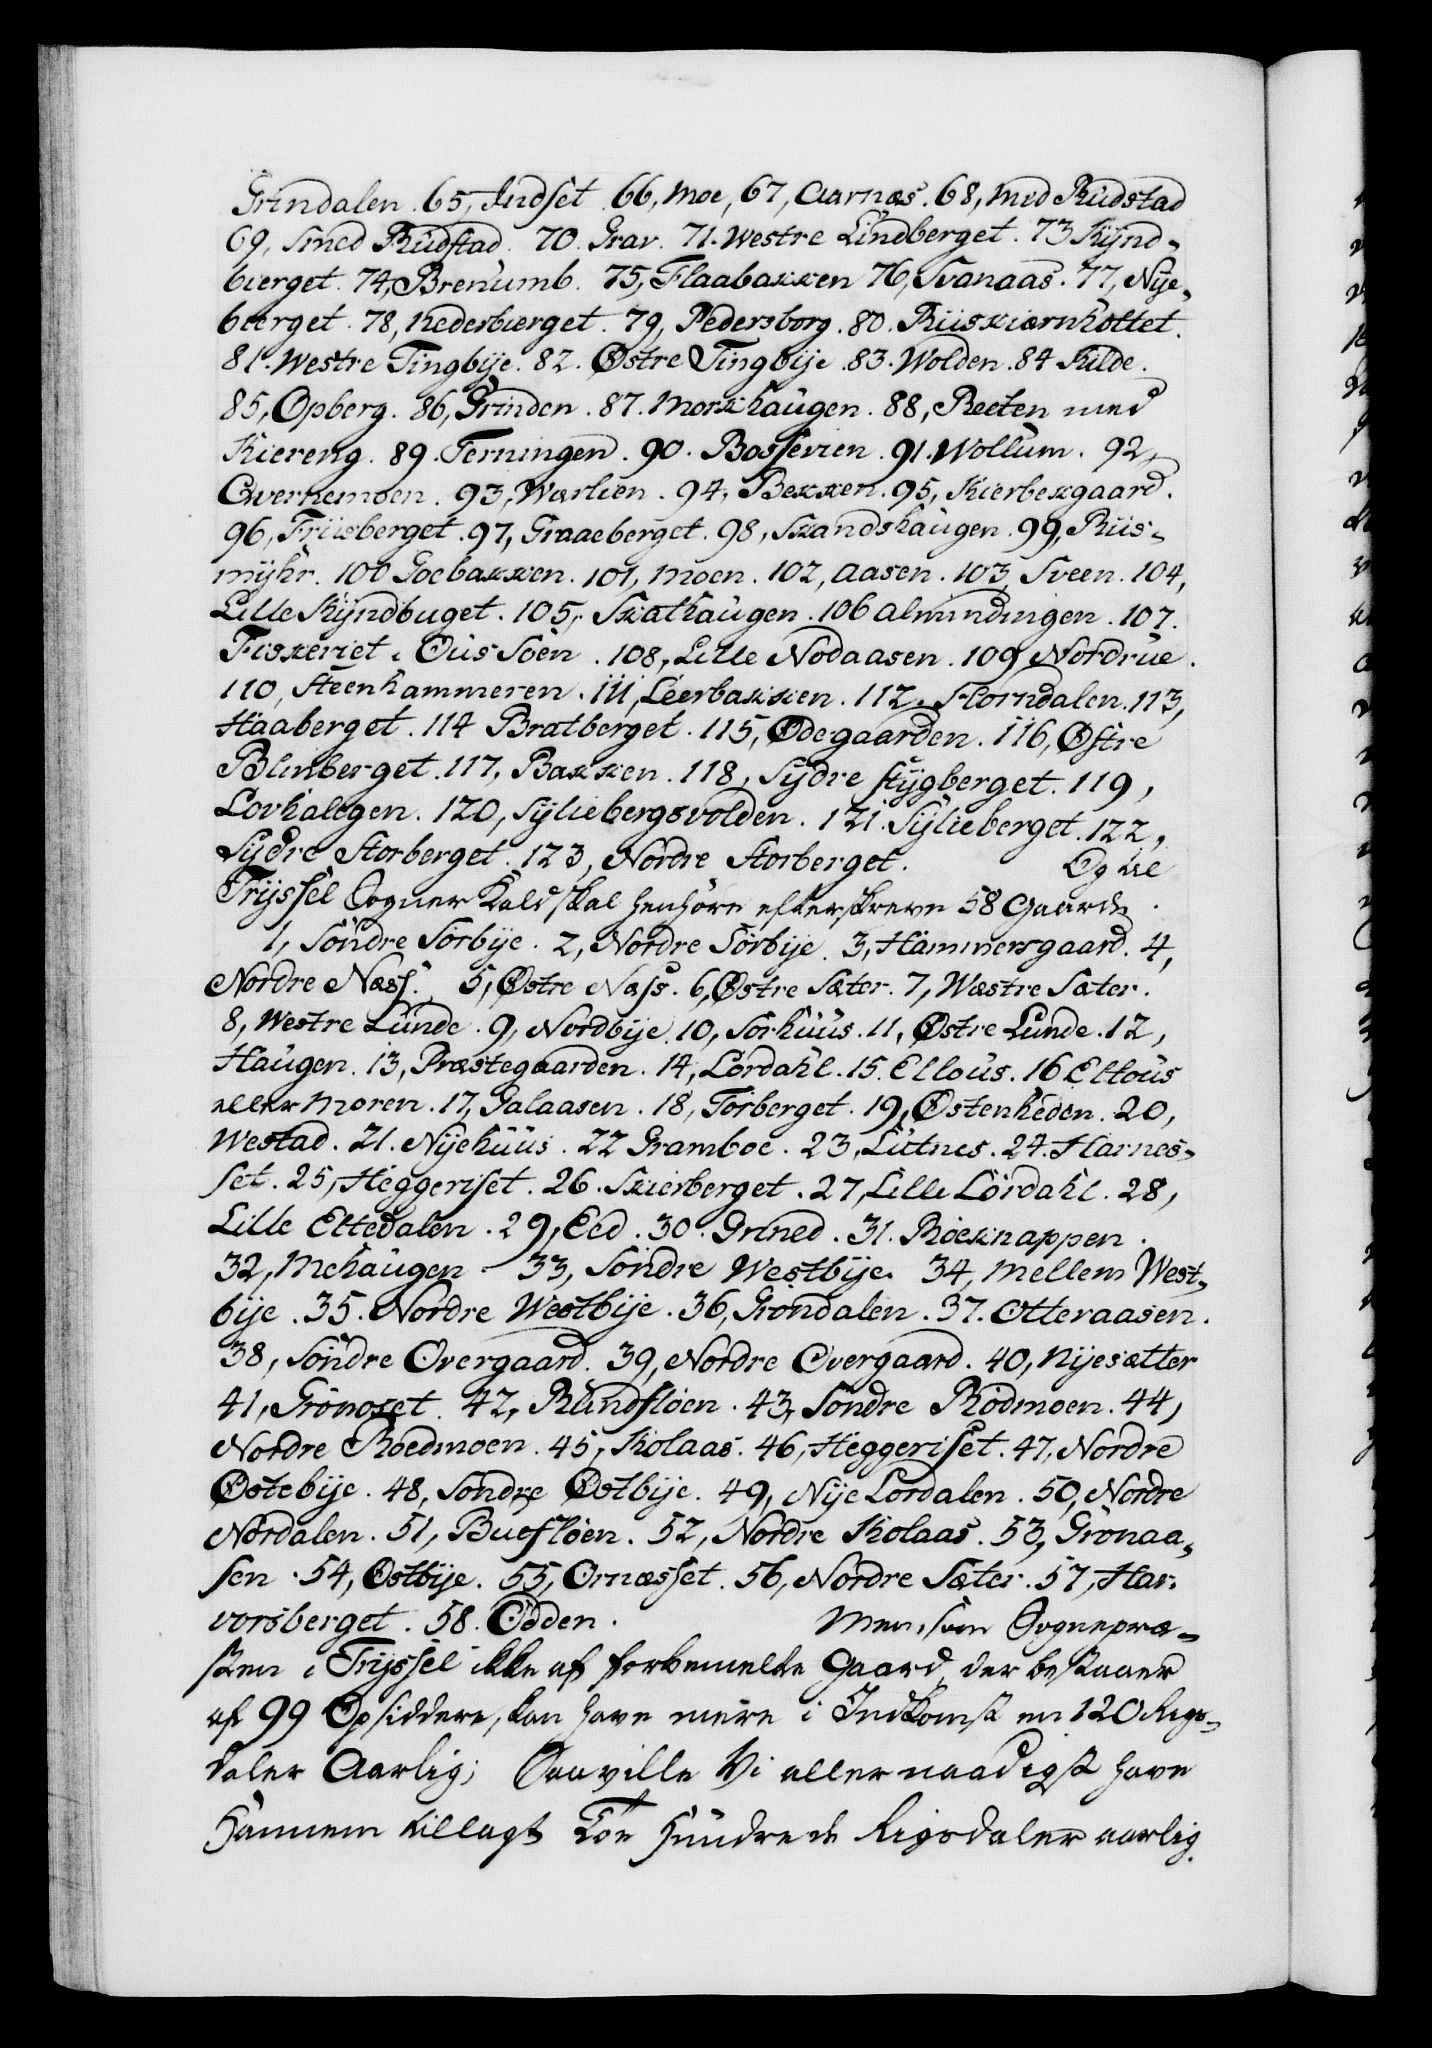 Grindalen. 65, Indset. 66, Moe, 67, Aarnæs. 68, Med Rudstad
69, Smed Rudstad. 70. Grav. 71. Westre Lindberget. 73 Kynd-
bierget. 74, Brenumb. 75, Flaabakken 76, Svanaas. 77, Nye-
bierget. 78, Kedersbierget. 79, Pedersborg. 80. Riiskiærnhottet.
81. Westre Tingbye. 82. Østre Tingbye. 83. Wolden. 84 Kilde.
85, Opberg. 86, Grinden. 87. Morkhaugen. 88, Reeten med
Kiereng. 89. Terningen. 90. Bosservien. 91. Wollum. 92,
Qvernemoen. 93, Wærlien. 94, Bekken. 95, Kierbekgaard.
96, Friisberget. 97, Graaeberget. 98, Skandshaugen. 99, Riis-
myhr. 100 Goebakken. 101, Moen. 102, Aasen. 103, Sveen. 104,
Lille Kyndbuget. 105, Skathaugen. 106 Almindingen. 107.
Fiskeriet i Oussøen. 108, Lille Nodaasen. 109, Nordrue.
110, Steenhammeren. 111, Leerbakken. 112. Florndalen. 113,
Haaberget. 114 Bratberget. 115, Ødegaarden. 116, Østre
Blinberget. 117, Bakken. 118, Sydre Stygberget. 119,
Lovhalegen. 120, Syliebergsvolden. 121. Sylieberget. 122,
Sydre Storberget. 123, Nordre Storberget. Og til
Tryssel Sogner Kald skal henhøre efterskrevne 58 Gaarde.
1, Søndre Sørbye. 2, Nordre Sørbye. 3, Hammersgaard. 4,
Nordre Næss. 5, Østre Næss. 6, Østre Sæter. 7, Wæstre Sæter.
8, Westre Lunde. 9, Nordbye. 10, Sørhuus. 11, Østre Lunde. 12,
Haugen. 13, Præstegaarden. 14, Lørdahl. 15. Ellous. 16 Eltous
eller Moren. 17, Galaasen. 18, Torberget. 19, Østenheden. 20,
Westad. 21. Nyehuus. 22 Gramboe. 23, Lutnes. 24. Harnes-
set. 25, Heggeriset. 26. Skierberget. 27, Lille Lørdahl. 28,
Lille Eltedalen. 29, Eed. 30. Grined. 31. Roeknappen.
32, Mehaugen 33, Søndre Westbye. 34, Mellem West-
bye. 35. Nordre Westbye. 36, Grøndalen. 37. Otteraasen.
38, Søndre Overgaard. 39, Nordre Overgaard. 40, Nyesætter
41, Grønoset. 42, Rundfloen. 43, Søndre Rødmoen. 44,
Nordre Roedmoen. 45, Kolaas. 46, Heggeriset. 47, Nordre
Østebye. 48, Søndre Østbye. 49, Nye Lørdalen. 50, Nordre
Nordalen. 51, Buefloen. 52, Nordre Kolaas. 53, Grønaa-
sen. 54, Østbye. 55, Ornæsset. 56, Nordre Sæter. 57, Har-
vorsberget. 58. Odden. Men som Sognepræ-
sten i Tryssel ikke af forbemelte Gaard, der bestaaer
af 99 Opsiddere, kan have mere i Indkomst en 120 Rigs-
daler Aarlig; Saa ville Vi allernaadigst have
Hannem tillagt Toe Hundrede Rigsdaler aarlig.